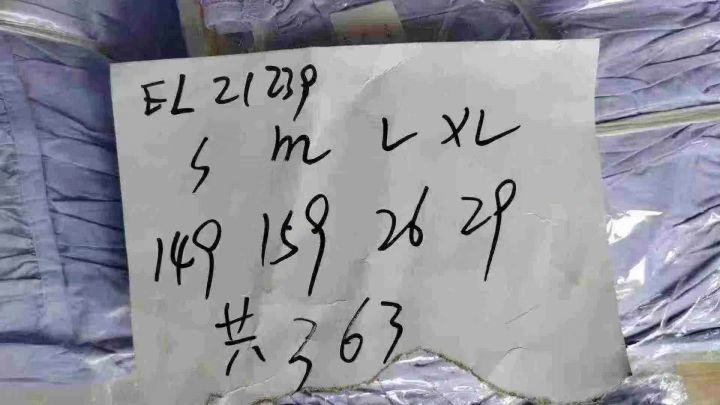 EL21239
S m L XL
149 159 26 29
共363